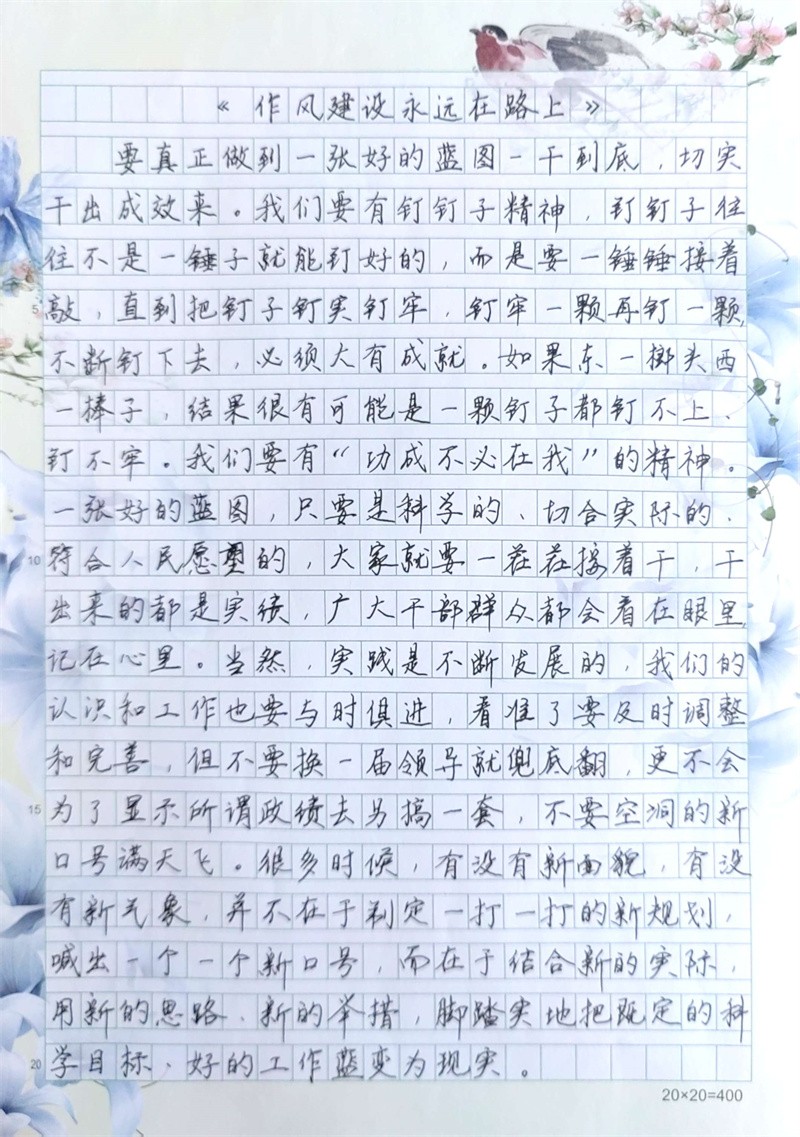 《作风建设永远在路上》
要真正做到一张好的蓝图一干到底，切实
干出成效来。我们要有钉钉子精神，钉钉子往
往不是一锤子就能钉好的，而是要一锤锤接着
5
敲，直到把钉子钉实钉牢，钉牢一颗再钉一颗，
不断钉下去，必须大有成就。如果东一榔头西
一棒子，结果很有可能是一颗钉子都钉不上、
钉不牢。我们要有“功成不必在我”的精神。
一张好的蓝图，只要是科学的、切合实际的、
10
符合人民愿望的，大家就要一茬茬接着干，干
出来的都是实绩，广大干部群众都会看在眼里、
记在心里。当然，实践是不断发展的，我们的
认识和工作也要与时俱进，看准了要及时调整
和完善，但不要换一届领导就兜底翻，更不会
15
为了显示所谓政绩去另搞一套，不要空洞的新
口号满天飞。很多时候，有没有新面貌，有没
有新气象，并不在于制定一打一打的新规划，
喊出一个一个新口号，而在于结合新的实际，
用新的思路、新的举措，脚踏实地把既定的科
20
学目标、好的工作蓝变为现实。
20×20=400